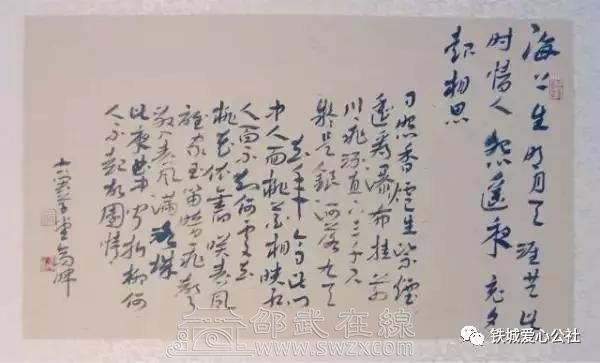 海上生明月天涯共此
时情人怨遥夜竟夕
起相思
日照香炉生紫烟
遥看瀑布挂前
川飞流直下三千尺
疑是银河落九天
去年今日此门
中人面桃花相映红
人面不知何处去
桃花依旧笑春风
谁家玉笛暗飞声
散入春风满洛城
此夜曲中闻折柳何
人不起故园情
邵武在線
www.swzx.com
铁城爱心公社